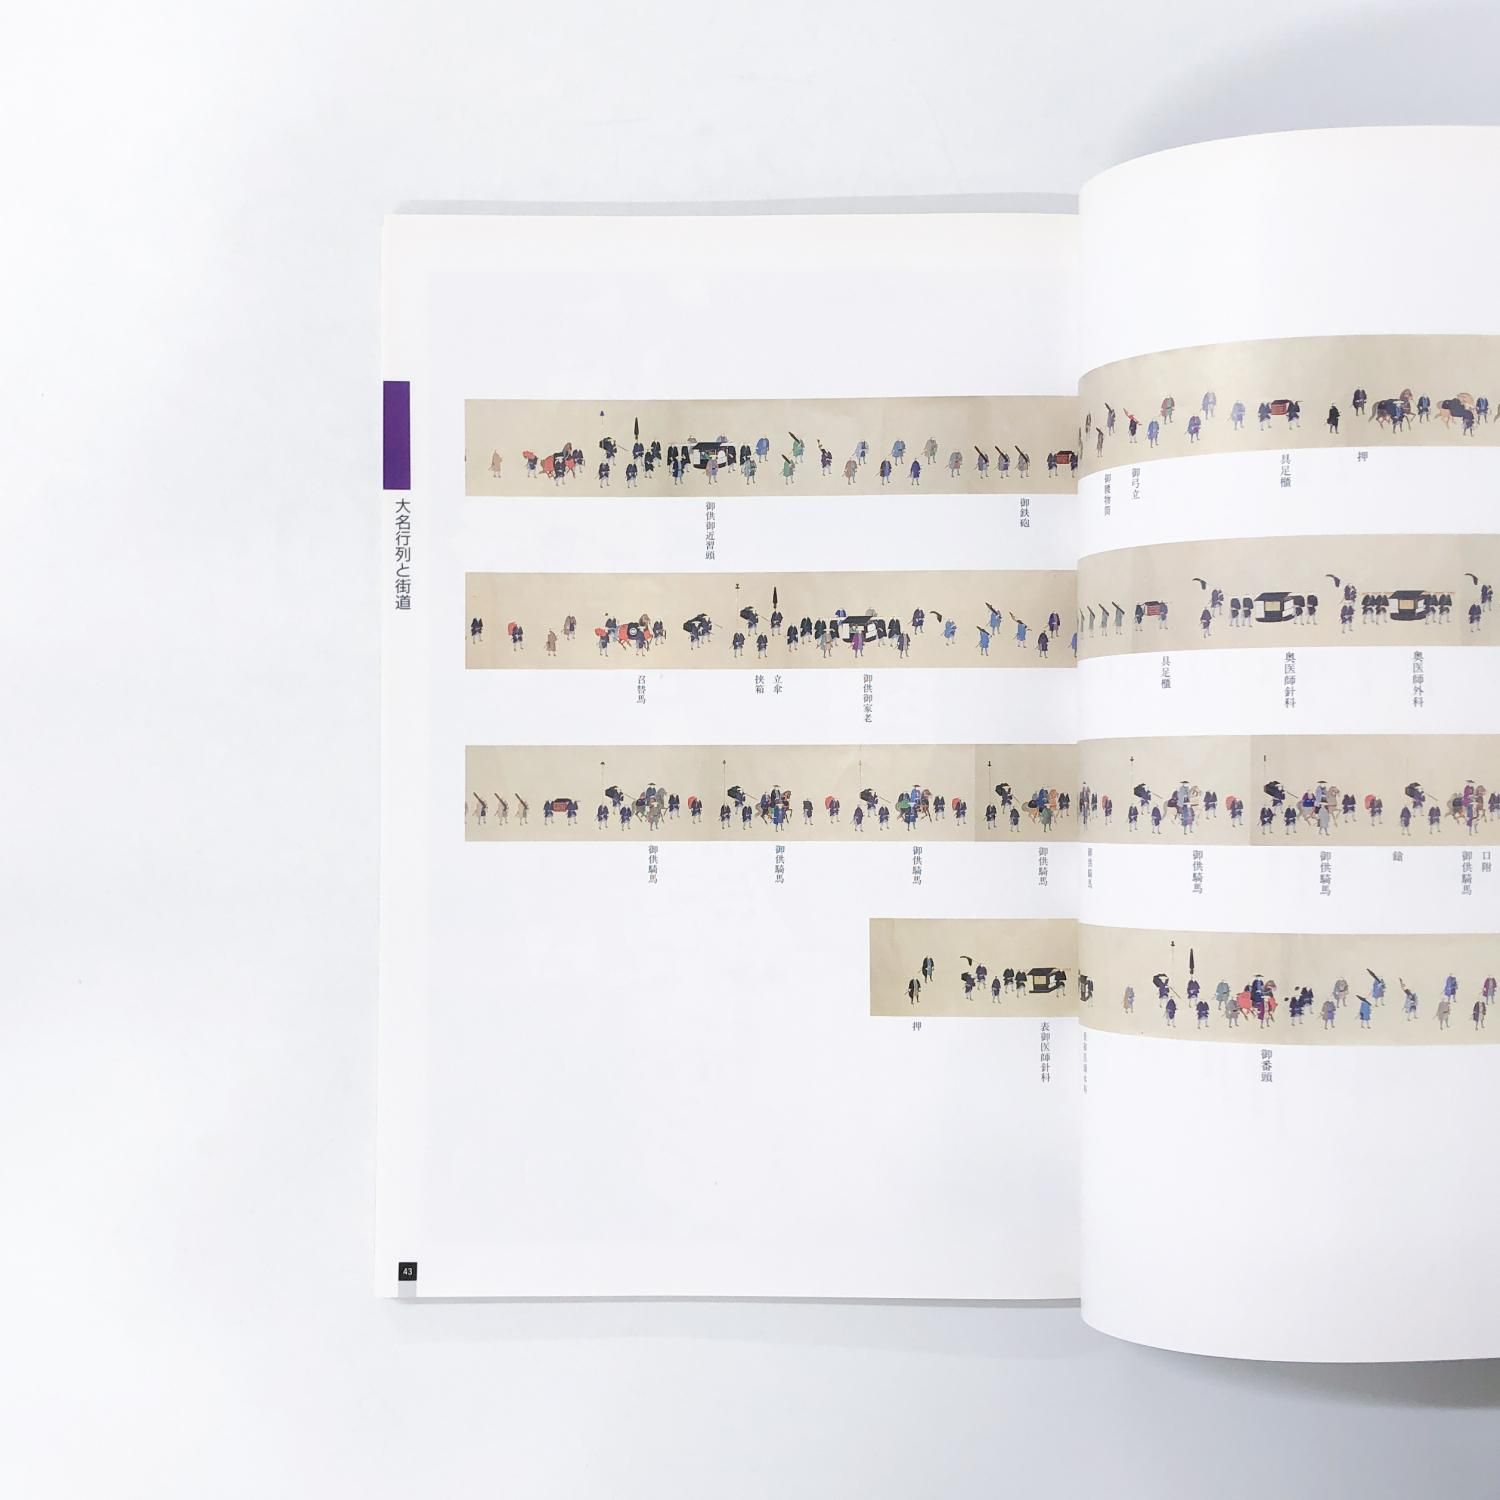 大名行列と街道
押
具足櫃
御弓立
御鉄砲
御供御近習頭
奥医師外科
奥医師針科
具足櫃
御供御家老
立傘
挟箱
召替馬
口附
御供騎馬
鎗
御供騎馬
御供騎馬
御供騎馬
御供騎馬
御供騎馬
御供騎馬
御供騎馬
御番頭
表御医師針科
押
43